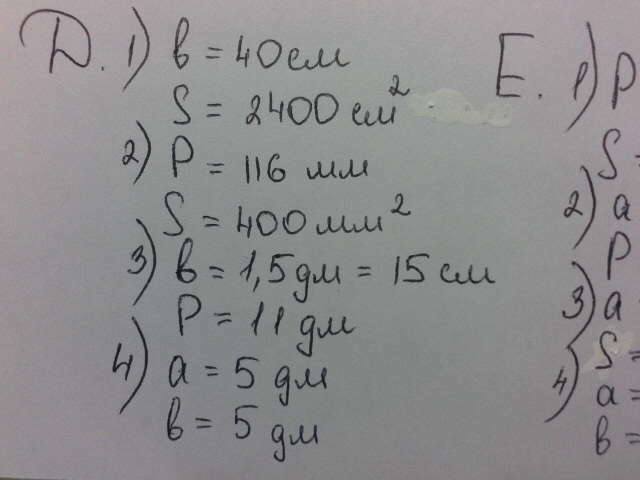 D. 1) в = 40 см
S = 2400 см²
2) P = 116 мм
S = 400 мм²
3) в = 1,5 дм = 15 см
P = 11 дм
4) a = 5 дм
в = 5 дм
E. 1) P
S =
2) a
P
3) a
S =
4) a =
в =